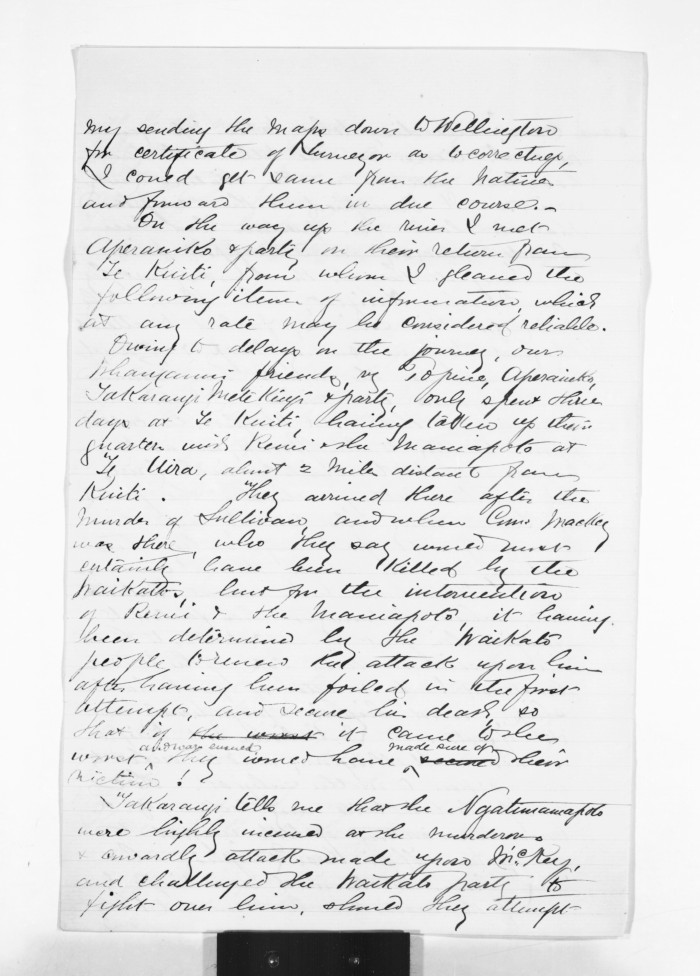 my sending the maps down to Wellington
for certificate of Surveyor as to correctness,
I could get same from the Natives
and forward them in due course. –
On the way up the river I met
Aperaniko & party on their return from
Te Kuiti, from whom I gleaned the
following items of information, which
at any rate may be considered reliable.
Owing to delays on the journey, our
Whanganui friends, vz Topine, Aperaniko,
Takarangi Mete Kingi & party, only spent three
days at Te Kuiti, having taken up their
quarters with Rewi & the Maniapoto at
Te Uira, about 2 miles distant from
Kuiti. They arrived there after the
murder of Sullivan, and when Comr Mackey
was there, who they say would most
certainly have been killed by the
Waikatos, but for the intervention
of Rewi & the Maniapoto, it having
been determined by the Waikato
people to renew the attack upon him
after having been foiled in the first
attempt, and secure his death, so
that if the worst it came to the
worst, and war ensued, they would have made sure of secured their
victim!
Takarangi tells me that the Ngatimaniapoto
were highly incensed at the murderous
& cowardly attack made upon McKey,
and challenged the Waikato party to
fight over him, should they attempt